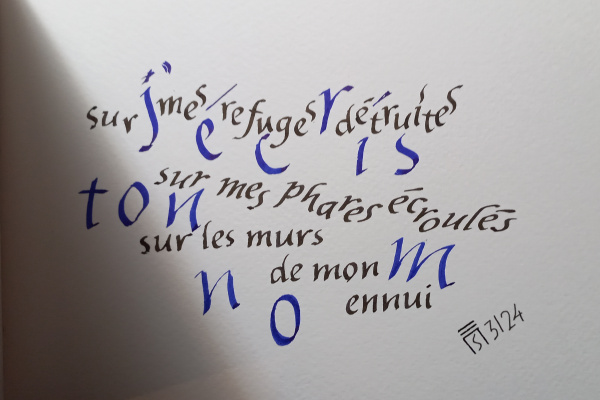 sur mes refuges détruites
j'écris
sur mes phares écroulés
ton
sur les murs
de mon
ennui
nom
3/24